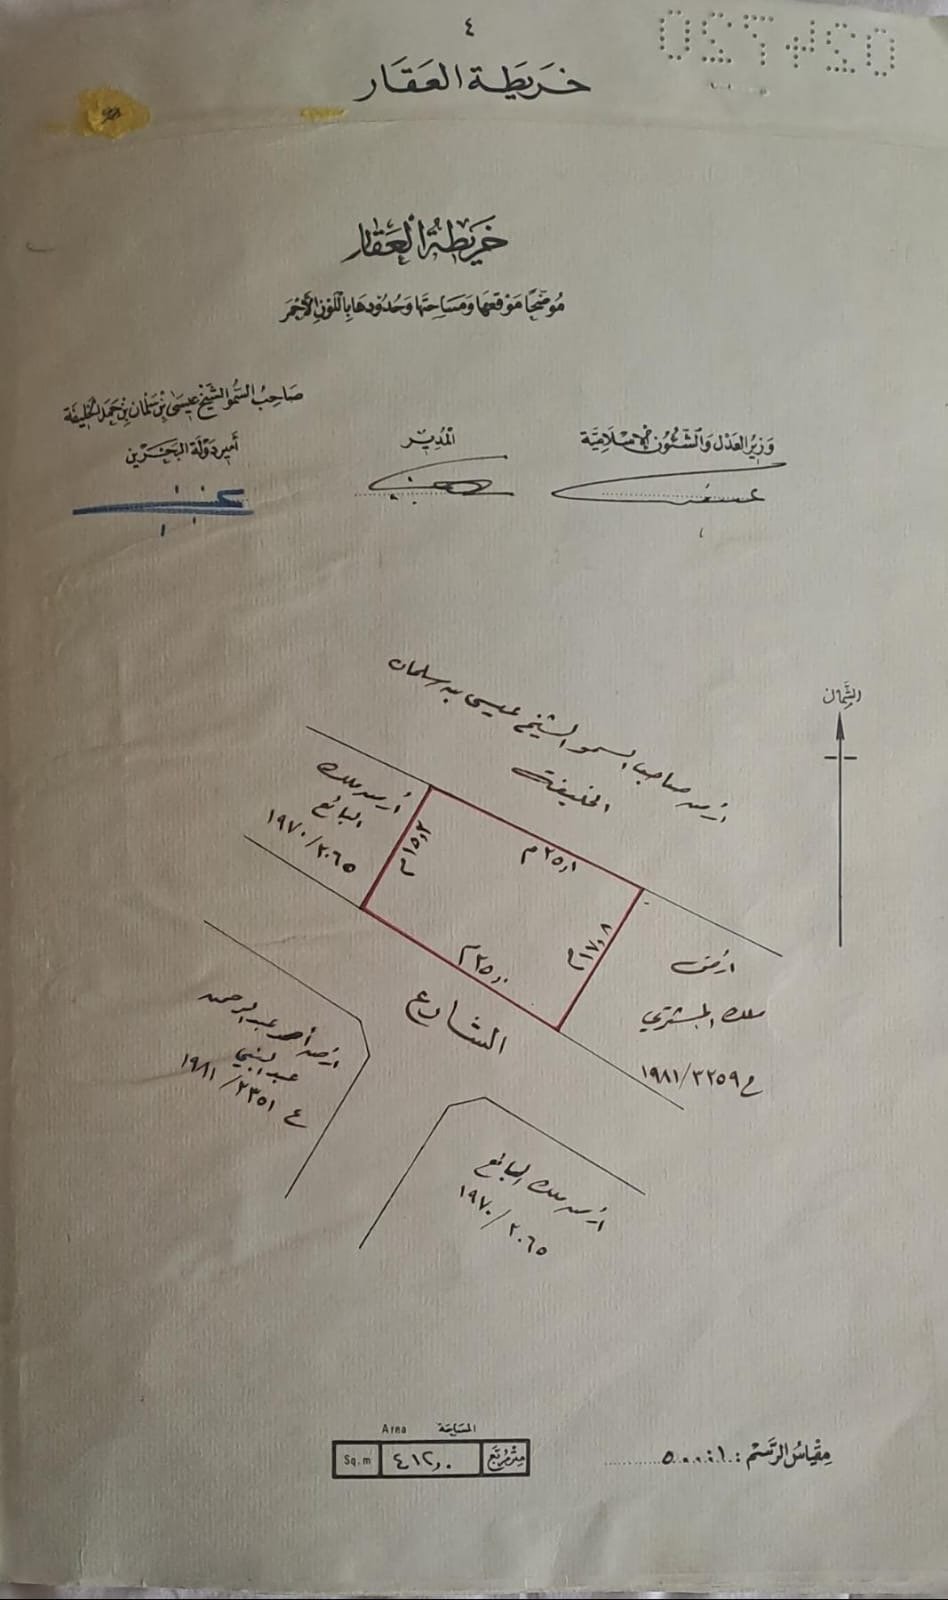 ٤
خريطة العقار
خريطة العقار
موضحا موقعها ومساحتها وحدودها باللون الأحمر
صاحب السمو الشيخ عيسى بن سلمان بن حمد الخليفة
أمير دولة البحرين
المدير
وزير العدل والشئون الإسلامية
الشمال
ارض صاحب السمو الشيخ عيسى بن سلمان
الخليفة
أرض ملك
البائع
١٩٧٠/٢٠٦٥
١٥٫٢ م
٢٥٫١ م
١٧٫٨ م
٢٥٫٠ م
ارض
ملك المشتري
١٩٨١/٣٢٥٩
الشارع
ارض أحمد عبدالرحمن
عبدالنبي
١٩٨١/٢٣٥١
ارض ملك البائع
١٩٧٠/٢٠٦٥
Area المساحة
Sq.m ٤١٢٫٠ متر مربع
مقياس الرسم : ١ : ٥٠٠